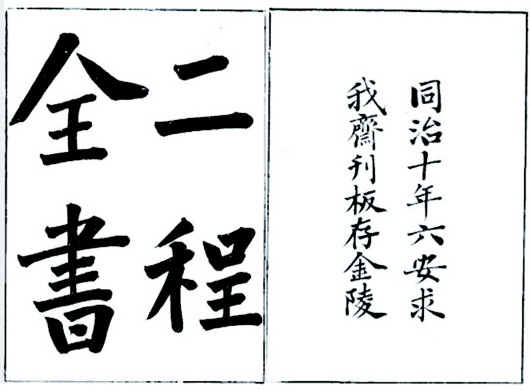 二程
全書
同治十年六安求
我齋刊板存金陵